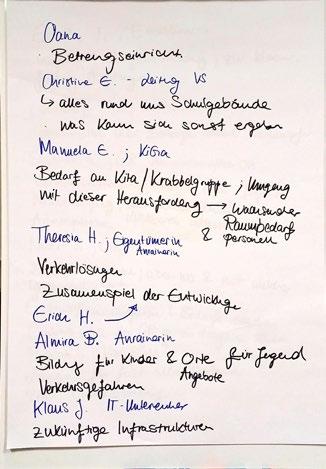 Oana
· Betreungseinricht.
Christine E. - Leitung VS
↳ alles rund ums Schulgebäude
· was kann sich sonst ergeben
Manuela E. ; KiGa
Bedarf an Kita/Krabbelgruppe ; Umgang
mit dieser Herausforderung → wachsender
Raumbedarf
& Personen
Theresia H. ; Eigentümerin
Anrainerin
Verkehrlösungen
Zusamenspiel der Entwicklunge
Erich H.
Almira B. Anrainerin
Bildung für Kinder & Orte für Jugend
Angebote
Verkehrsgefahren
Klaus J. IT-Unternehmer
zukünftige Infrastrukturen